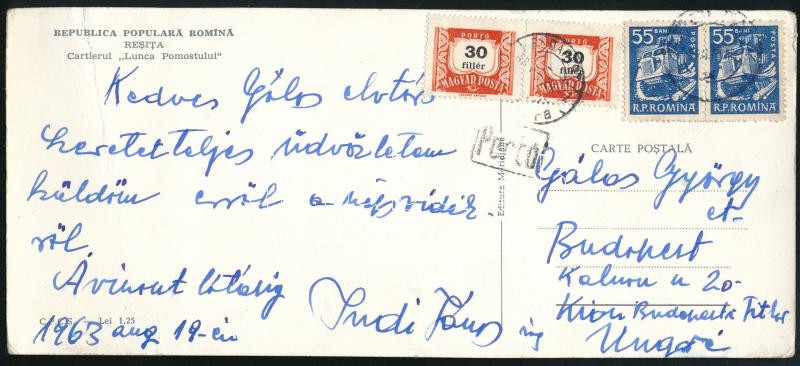 REPUBLICA POPULARĂ ROMÎNĂ
REȘIȚA
Cartierul „Lunca Pomostului"
PORTÓ
30
fillér
MAGYAR POSTA
PORTÓ
30
fillér
MAGYAR POSTA
55 BANI
POSTA
R.P. ROMINA
55 BANI
POSTA
R.P. ROMINA
Kedves Gálos elvtárs
szeretetteljes üdvözletem
küldöm erről a
ről.
A viszontlátásig
1963 aug 19-én
János
Lei 1.25
Portó
Editura Meridiane
CARTE POȘTALĂ
Gálos György
et-
Budapest
u 20
Budapesti